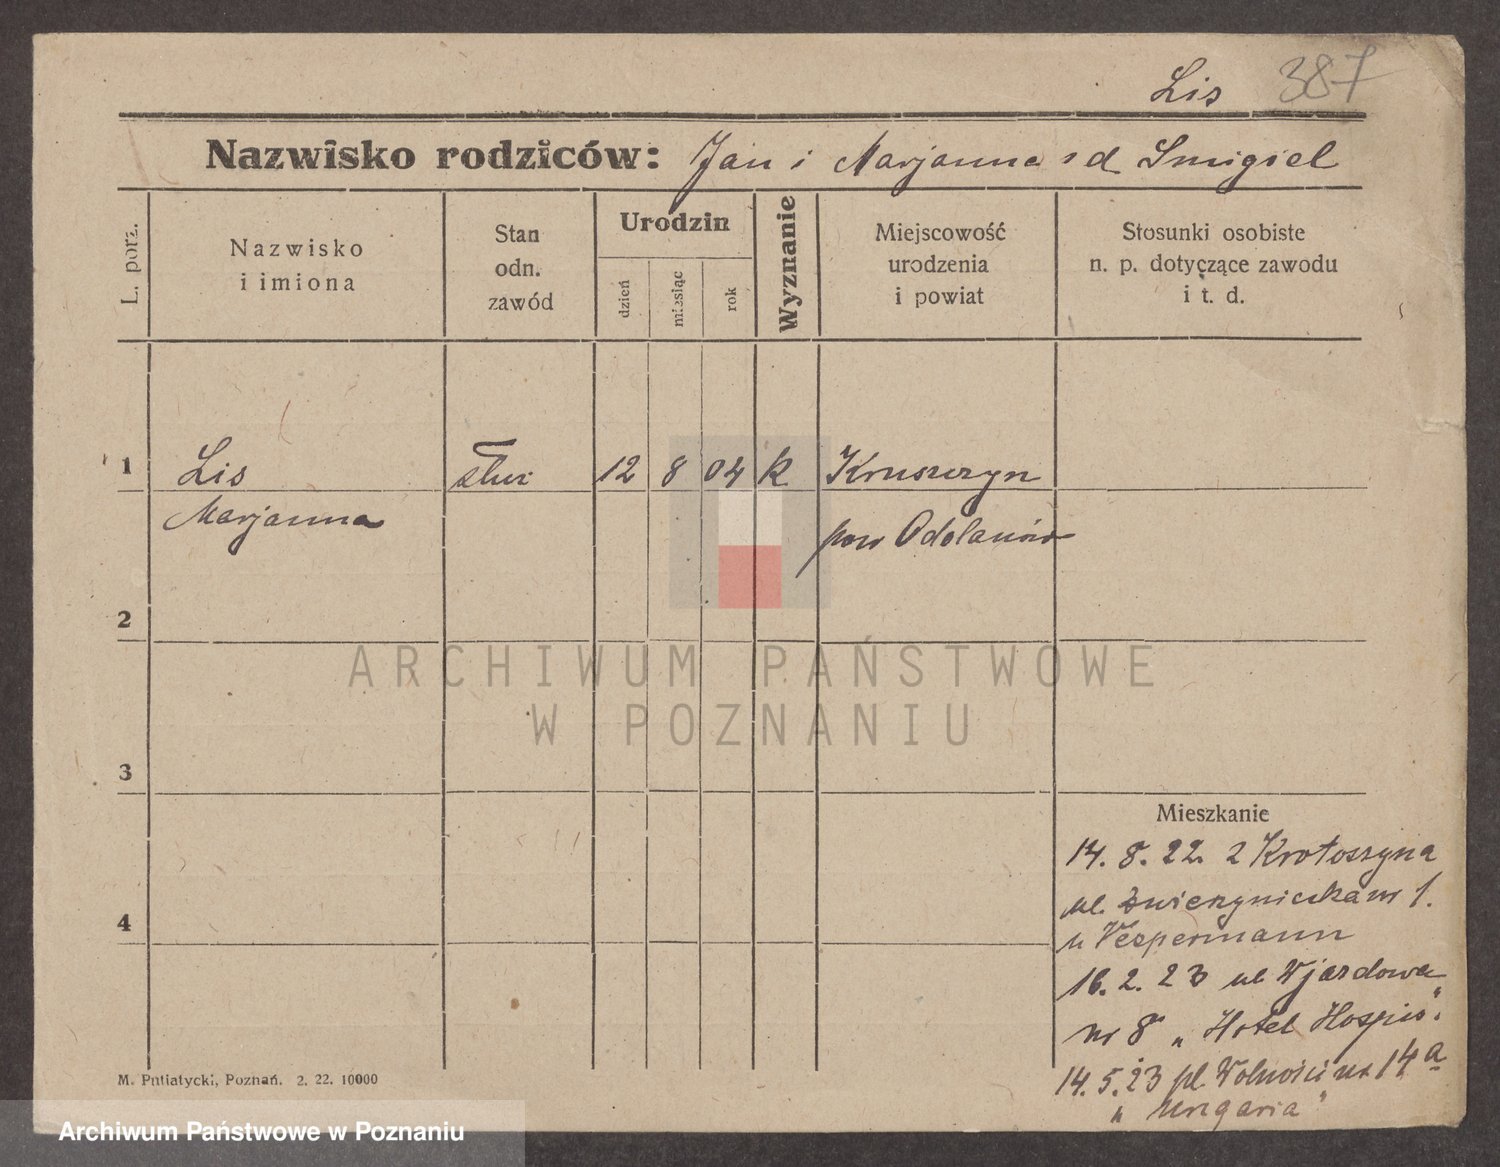 Lis 387
Nazwisko rodziców: Jan i Marjanna sd Smigiel
L. porz.
Nazwisko
i imiona
Stan
odn.
zawód
Urodzin
dzień
miesiąc
rok
Wyznanie
Miejscowość
urodzenia
i powiat
Stosunki osobiste
n. p. dotyczące zawodu
i t. d.
1 Lis służ 12 8 04 k Kruszczyn
Marjanna pow Odolanów
2
ARCHIWUM PAŃSTWOWE
W POZNANIU
3
Mieszkanie
14. 8. 22. z Krotoszyna
4
ul. Zwierzyniecka nr 1.
u Vespermann
16. 2. 23 ul Wjazdowa
nr 8 „Hotel Hospis"
14. 5. 23 pl. Wolności nr 14a
„Ungaria"
M. Putiatycki, Poznań. 2. 22. 10000
Archiwum Państwowe w Poznaniu